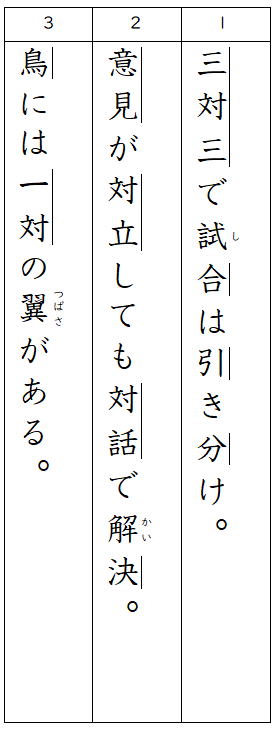 1
三対三で試合は引き分け。
し
2
意見が対立しても対話で解決。
かい
3
鳥には一対の翼がある。
つばさ